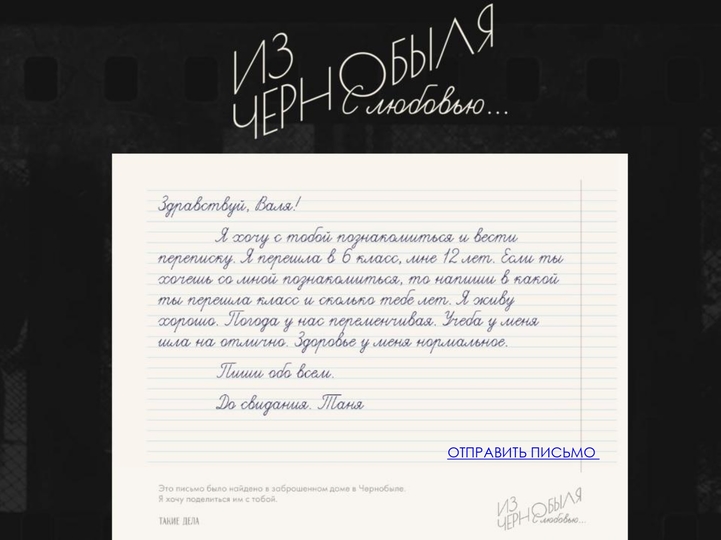 ИЗ
ЧЕРНОБЫЛЯ
С любовью...
Здравствуй, Валя!
Я хочу с тобой познакомиться и вести
переписку. Я перешла в 6 класс, мне 12 лет. Если ты
хочешь со мной познакомиться, то напиши в какой
ты перешла класс и сколько тебе лет. Я живу
хорошо. Погода у нас переменчивая. Учеба у меня
шла на отлично. Здоровье у меня нормальное.
Пиши обо всем.
До свидания. Таня
ОТПРАВИТЬ ПИСЬМО
Это письмо было найдено в заброшенном доме в Чернобыле.
Я хочу поделиться им с тобой.
ТАКИЕ ДЕЛА
ИЗ
ЧЕРНОБЫЛЯ
С любовью...